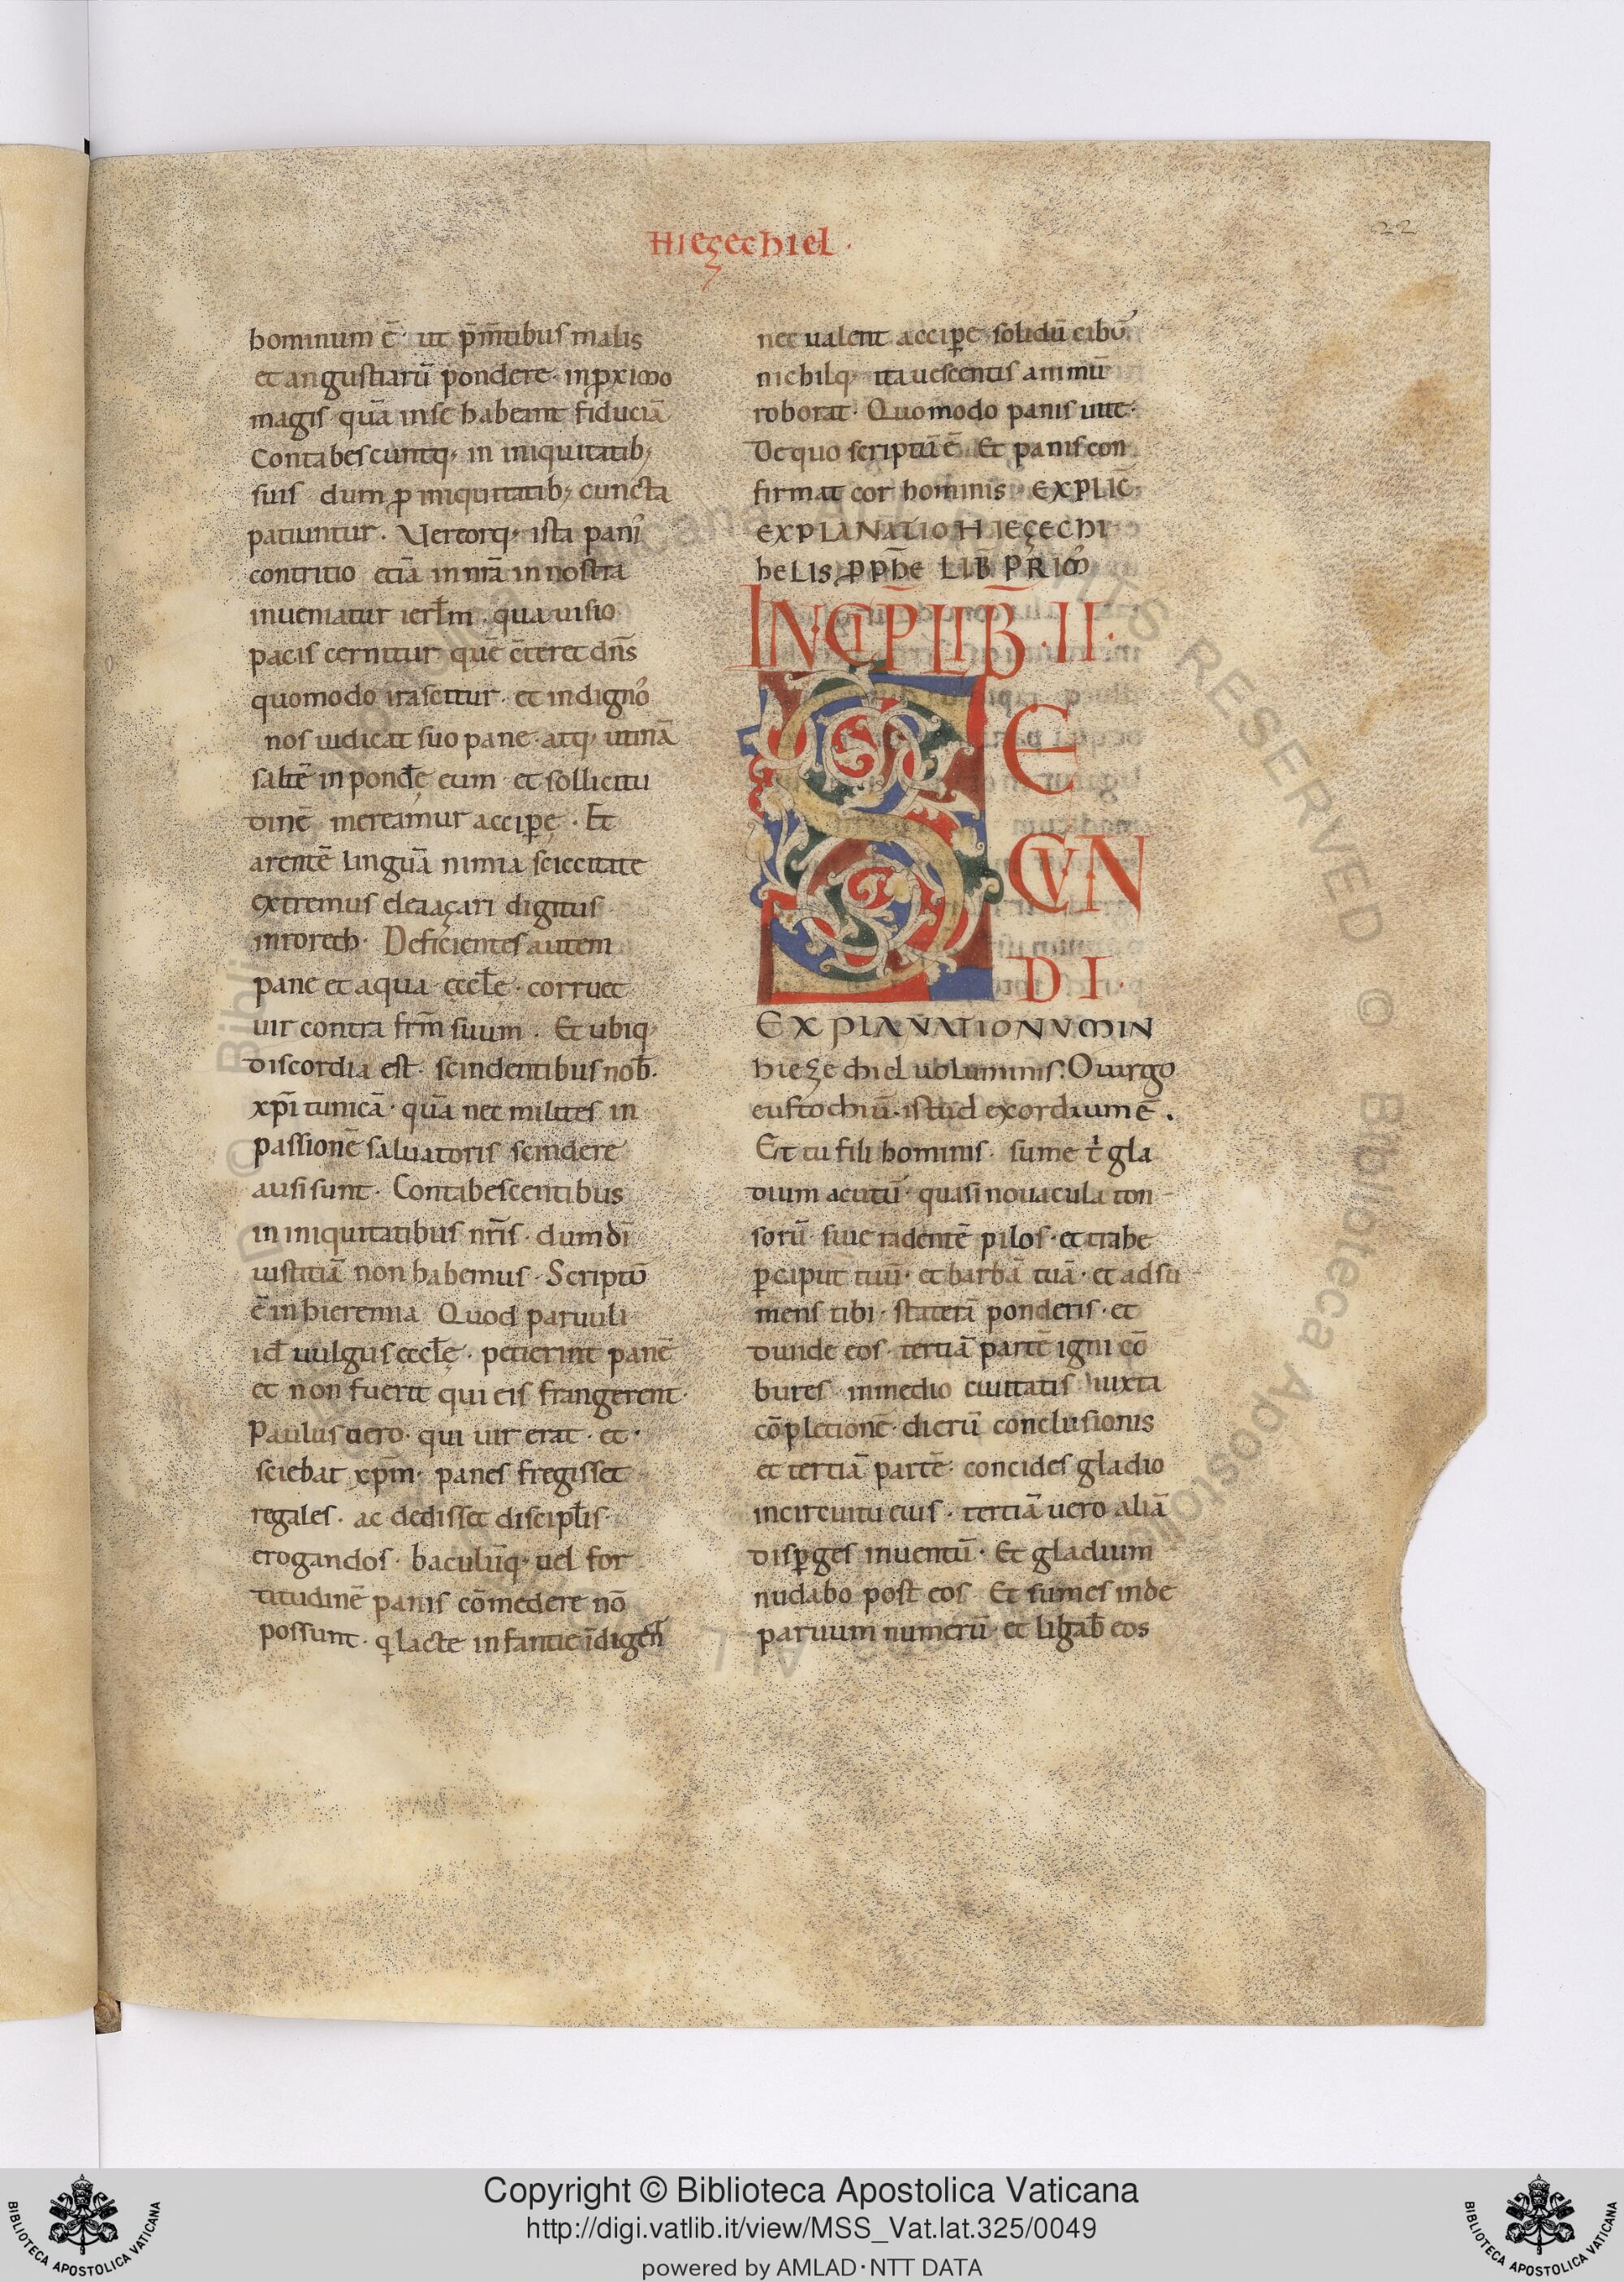 Hieȝechiel·
22
hominum ē· ut p̄m̄tibus malis
et angustiarū pondere· inꝓximo
magis quā in se habeant fiduciā
Contabescuntq; in iniquitatib;
suis dum ꝓ iniquitatib; cuncta
patiuntur. Vereorq; ista pani᷒
contritio etiā in nr̄a in nostra
inueniatur ierl̄m. qua uisio
pacis cernitur quē c̄teret dn̄s
quomodo irascitur. et indign᷒o
nos iudicat suo pane· atq; utinā
saltē in pondę eum et sollicitu
dinē mereamur acciꝑę. Et
arentē linguā nimia sciccitate
extremus eleaçari digitus
inrorech· Deficientes autem
pane et aqua ęccl̄ę· corruet
uir contra frm̄ suum. Et ubiq;
discordia est· scindentibus nob̄.
xp̄i tunicā· quā nec milites in
passionē saluatoris scindere
ausi sunt· Contabescentibus
in iniquitatibus nr̄is· dum dī
iustitiā non habemus· Scriptū
ē in hieremia Quod paruuli
id̄ uulgus eccl̄ę· petierint panē
et non fuerit qui eis frangerent·
Paulus uero· qui uir erat· et·
sciebat xp̄m· panes fregisset
regales· ac dedisset discipl̄is·
erogandos· baculūq· uel for
titudinē panis cōmedere nō
possunt· q lacte infantie īdigen̄
nec ualent acciꝑe solidū cibū.
nichilq; ita uescentis animū
roborat· Quomodo panis uite·
De quo scriptū ē Et panis con
firmat cor hominis· EXPLIC̄
EXPLANATIO HIEÇECHI
heLIS ꝓpħe LIB̄ PRIM᷒
INCIP̄ LIB̄·II·
SE
CVN
DI·
EXPLANATIONVM IN
hieȝechiel uoluminis: O uirgo
eustochiū· istud exordium ē.
Et tu fili hominis· sume t᷒ gla
dium acutū· quasi nouacula ton
sorū siue radentē pilos· et trahe
ꝑ caput tuū· et barbā tuā· et adsu
mens tibi· staterā ponderis· et
diuide eos· tertiā partē igni cō
bures· in medio ciuitatis iuxta
cōpletionē· dierū conclusionis
et tertiā partē· concides gladio
in circuitu eius· tertiā uero aliā
disꝑges in uentū· Et gladium
nudabo post eos Et sumes inde
paruum numerū· et ligab̄ eos
Copyright © Biblioteca Apostolica Vaticana
http://digi.vatlib.it/view/MSS_Vat.lat.325/0049
powered by AMLAD·NTT DATA
BIBLIOTECA APOSTOLICA VATICANA
BIBLIOTECA APOSTOLICA VATICANA